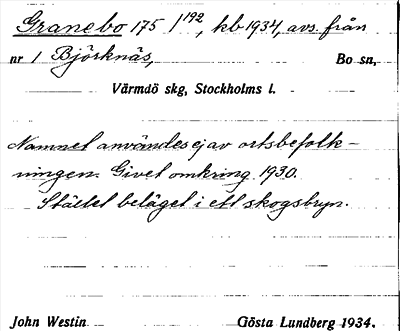 Granebo 175 1/192, kb 1934, avs. från
nr 1 Björknäs, Bo sn,
Värmdö skg, Stockholms l.
Namnet användes ej av ortsbefolk-
ningen. Givet omkring 1930.
Stället beläget i ett skogsbryn.
John Westin Gösta Lundberg 1934.